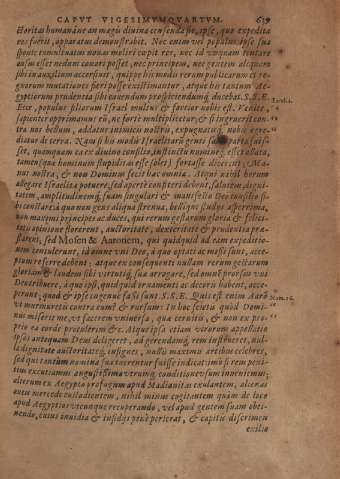 CAPUT VIGESIMUMQUARTUM. 639
ctoritas humana: an magis divina censenda sit, ipse, quo expedita
res fuerit, apparatus demonstrabit. Nec enim vel populus ipse sua
sponte commutatus novas moliri cœpit res, nec id unquam tentare
ausus esset nedum conari posset, nec principem, nec gentem aliquam
sibi in auxilium accersiit, quippe his modis rerum publicarum et re-
gnorum mutationes fieri posse existimantur, atque his tantum Ae-
gyptiorum prudentia sibi cavendum prospiciendumq́; ducebat. S.S.E.
Ecce, populus filiorum Israel multus & fortior nobis est. Venite,
sapienter opprimamus eũ, ne forte multiplicetur, & si ingruerit con-
tra nos bellum, addatur inimicis nostris, expugnatisq́; nobis egre-
diatur de terra. Nam si his modis Israelitarũ genti salus parta fuis-
set, quamquam ea ex divino consilio, instinctu numineq́; esset allata,
tamen (quæ hominum stupiditas esse solet) fortasse dicerent, Ma-
nus nostra, & non Dominus fecit hæc omnia. Atqui nihil horum
allegare Israelitæ potuere, sed aperte confiteri debent, salutem, digni-
tatem, amplitudinemq́; suam singulari & manifesto Deo
bi constare. à quo
non maximi principes ac duces, qui rerum gestarum gloria & felici-
tatis opinione florerent, auctoritate, dexteritate & prudentia præ-
starent, sed Mosen & Aaronem, qui quidquid ad eam expeditio-
nem contulerunt, id omne uni Deo, à quo optati ac missi sunt, acce-
ptum referre debent; atque ex consequenti nullam rerum gestarum
gloriam & laudem sibi virtutiq́; suæ arrogare, sed omnẽ prorsus uni
Deo tribuere, à quo ipsi, quidquid ornamenti ac decoris habent, acce-
perunt, quod & ipse ingenue fassi sunt. S.S.E. Quis est enim Aarõ
ut murmuretis contra eum? & rursus: In hoc scietis quod Domi-
nus miserit me, ut facerem universa, quæ cernitis, & non ex pro-
prio ea corde protulerim &c. Atque ipsa etiam virorum appellatio
ipsos antequam Deus deligeret, ad gerendamq́; rem institueret, nul-
la dignitate auctoritateq́; insignes, nullis maximis artibus celebres,
sed qui tantùm nomina sua tuerentur fuisse indicat: imò si rem peni-
tus excutiamus angustissima utrumq́; conditione usum inveniemus;
alterum ex Aegypto profugum apud Madianitas exulantem, alienas
oves mercede custodientem, nihil minus cogitantem quàm de loco
apud Aegyptios utcunque recuperando, vel apud gentem suam obti-
nendo, cuius invidia & insidijs penè perierat, & capitis discrimen
exilio
Exod. 1.
Num. 16.